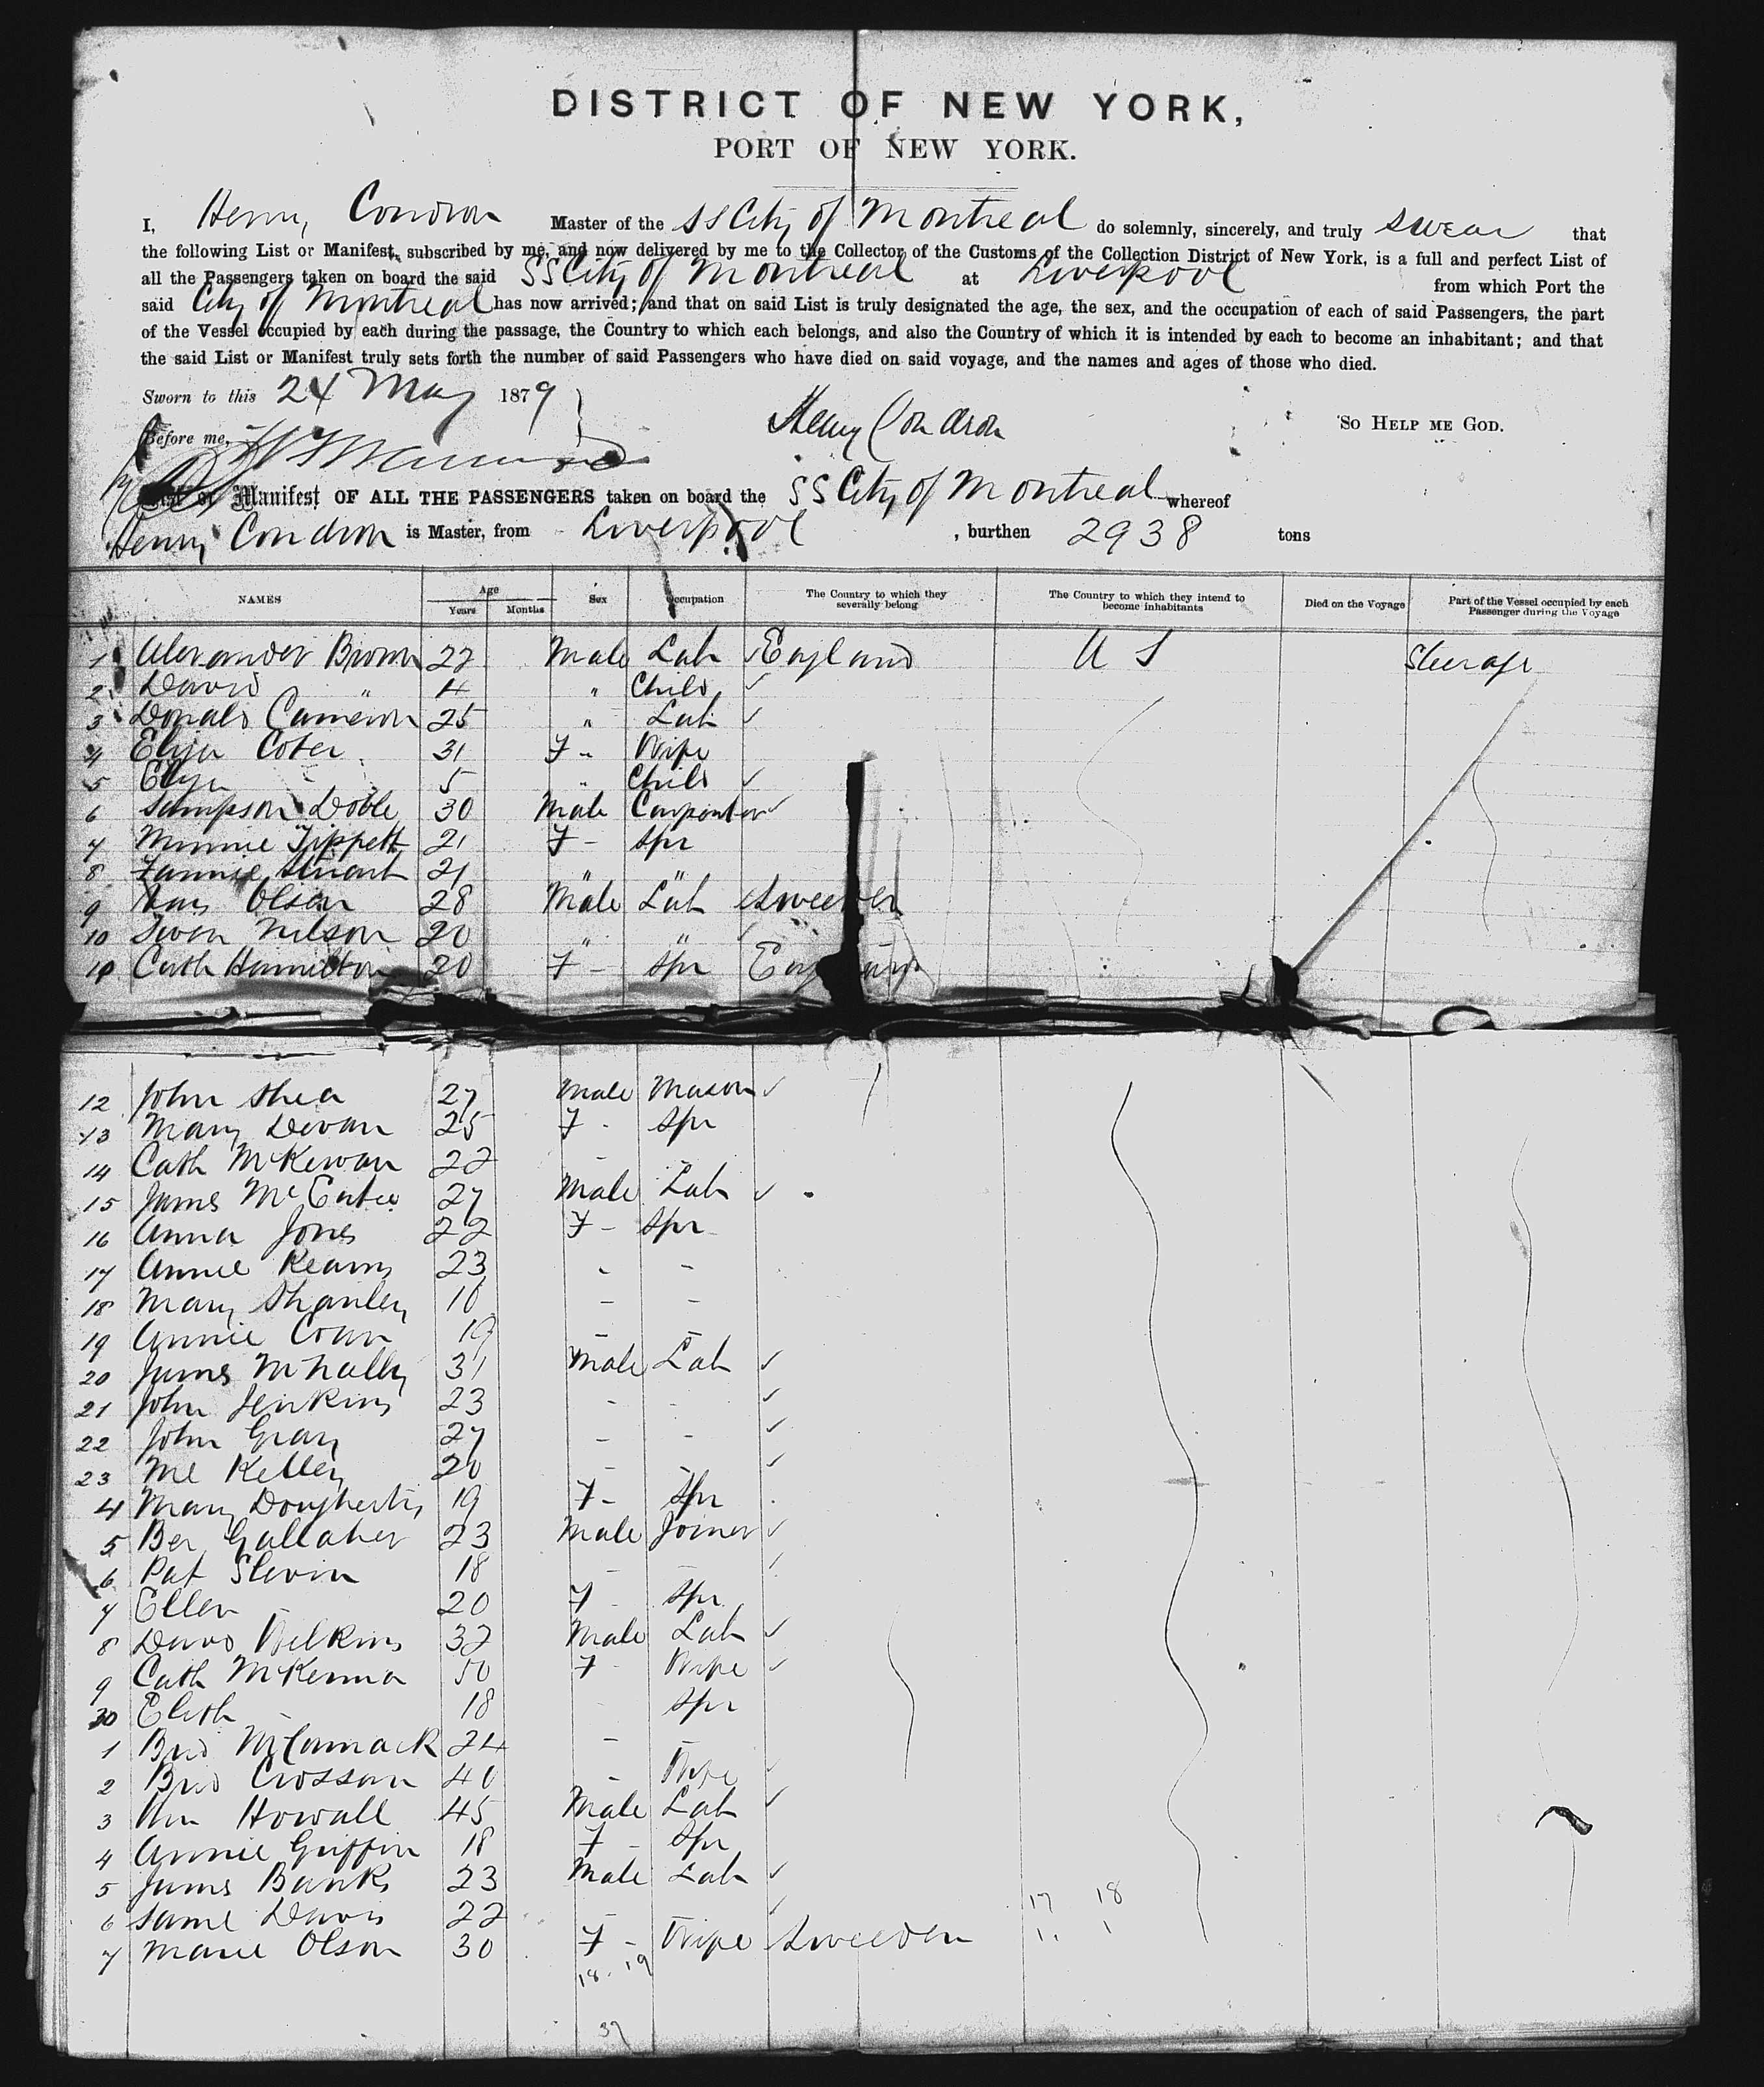 DISTRICT OF NEW YORK,
PORT OF NEW YORK.
I, Henry Condron Master of the SS City of Montreal do solemnly, sincerely, and truly swear that
the following List or Manifest, subscribed by me, and now delivered by me to the Collector of the Customs of the Collection District of New York, is a full and perfect List of
all the Passengers taken on board the said SS City of Montreal at Liverpool from which Port the
said City of Montreal has now arrived; and that on said List is truly designated the age, the sex, and the occupation of each of said Passengers, the part
of the Vessel occupied by each during the passage, the Country to which each belongs, and also the Country of which it is intended by each to become an inhabitant; and that
the said List or Manifest truly sets forth the number of said Passengers who have died on said voyage, and the names and ages of those who died.
Sworn to this 24 May 1879
Henry Condron SO HELP ME GOD.
Before me,
List or Manifest OF ALL THE PASSENGERS taken on board the SS City of Montreal whereof
Henry Condron is Master, from Liverpool , burthen 2938 tons
NAMES Age Years Months Sex Occupation The Country to which they severally belong The Country to which they intend to become inhabitants Died on the Voyage Part of the Vessel occupied by each Passenger during the Voyage
1 Alexander Brown 22 Male Lab England U S Steerage
2 David " 4 " Child
3 Donald Cameron 25 " Lab
4 Eliza Coter 31 F " Wife
5 Eliza " 5 " Child
6 Sampson Doble 30 Male Carpenter
7 Minnie Tippett 21 F - Spr
8 Fannie Stuart 21 " "
9 Olson 28 Male Lab Sweeden
10 Swen Nilson 20 " "
11 Cath Hamilton 20 F - Spr England
12 John Shea 27 Male Mason
13 Mary Devan 25 F - Spr
14 Cath McKewan 22 - -
15 James McEntee 27 Male Lab
16 Anna Jones 22 F - Spr
17 Annie Kearns 23 - -
18 Mary Shanley 18 - -
19 Annie Coan 19 - -
20 James McNally 31 Male Lab
21 John Jenkins 23 - -
22 John Gray 27 - -
23 Ml Kelley 20 - -
4 Mary Dougherty 19 F - Spr
5 Ber Gallaher 23 Male Joiner
6 Pat Slevin 18 - -
7 Ellen - 20 F - Spr
8 David Wilkins 32 Male Lab
9 Cath McKenna 50 F - Wife
30 Elisth - 18 - Spr
1 Brid McCamack 24 - -
2 Brid Crossan 40 - Wife
3 Wm Howall 45 Male Lab
4 Annie Griffin 18 F - Spr
5 James Banks 23 Male Lab
6 Saml Davis 22 - -
7 Marie Olson 30 F - Wife Sweeden
17 18
1. 1
18. 19
37